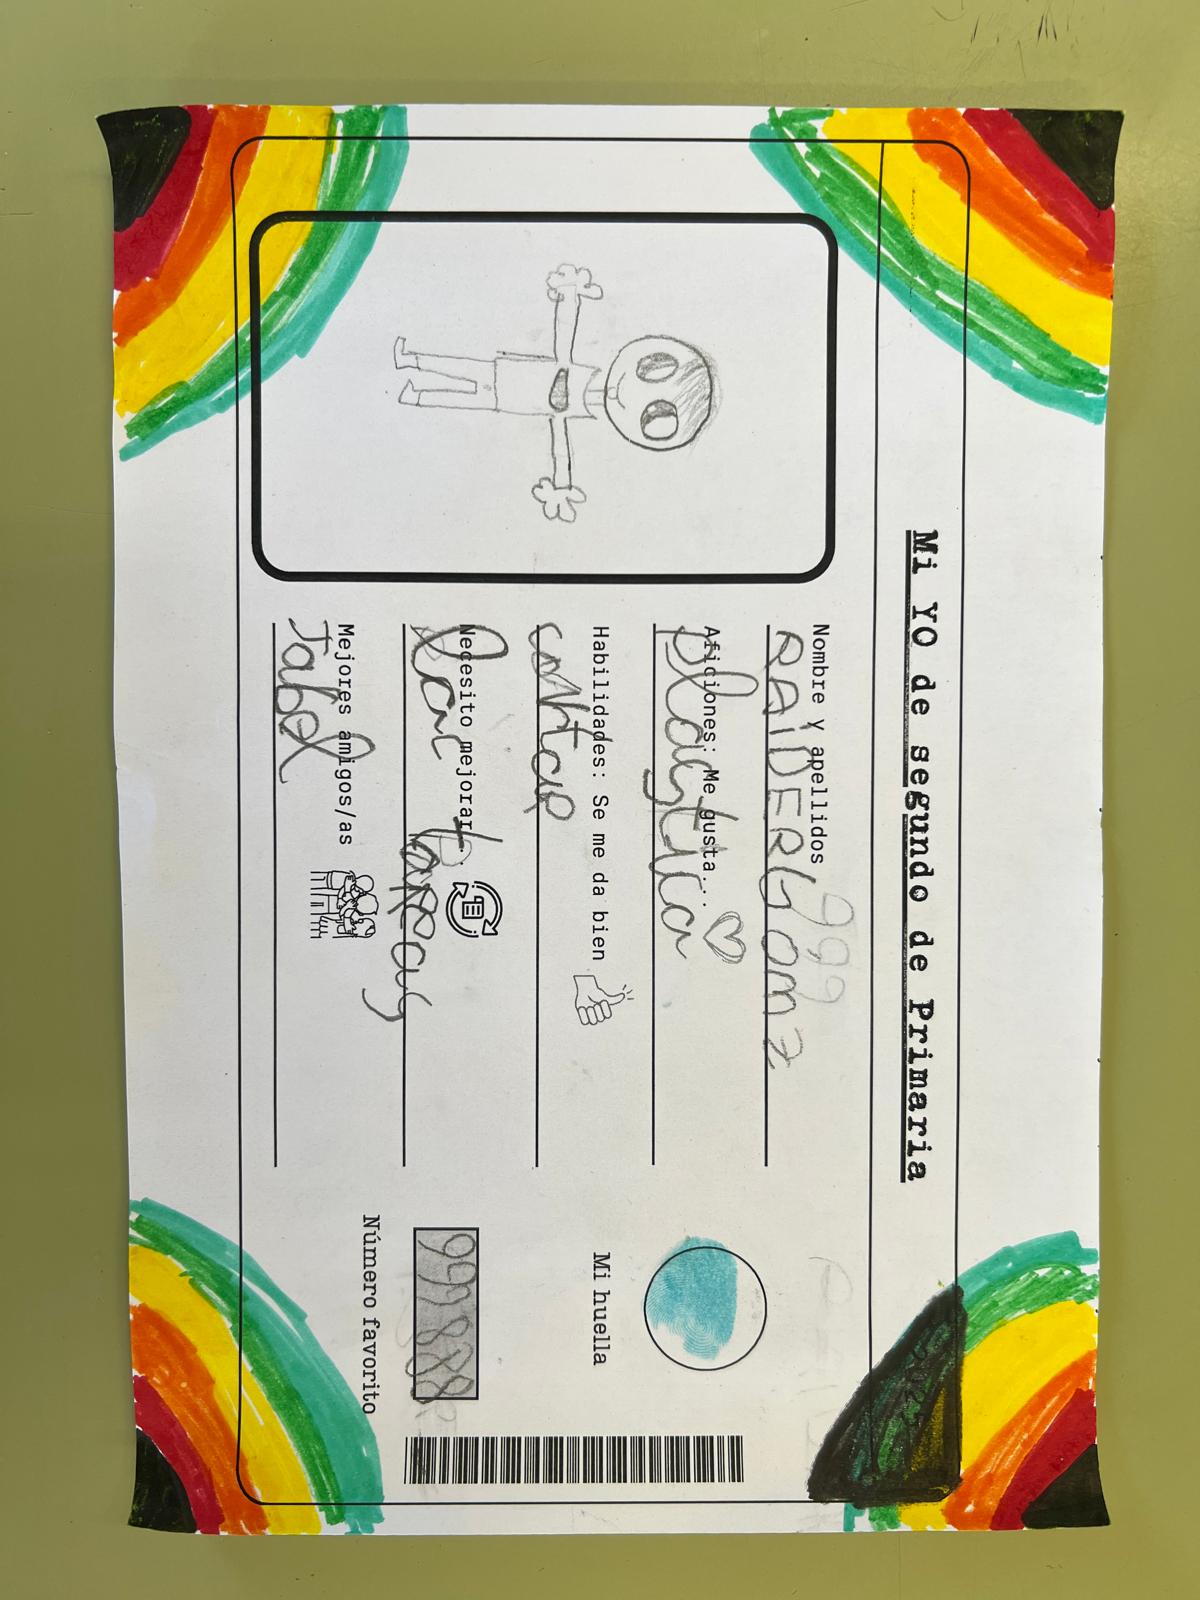 Mi YO de segundo de Primaria
Nombre y apellidos 999
RAIDER GÓMZ
Aficiones: Me gusta...
plastica
Habilidades: Se me da bien
contar
Necesito mejorar...
lac tareas
Mejores amigos/as
Jabel
Mi huella
999888
Número favorito